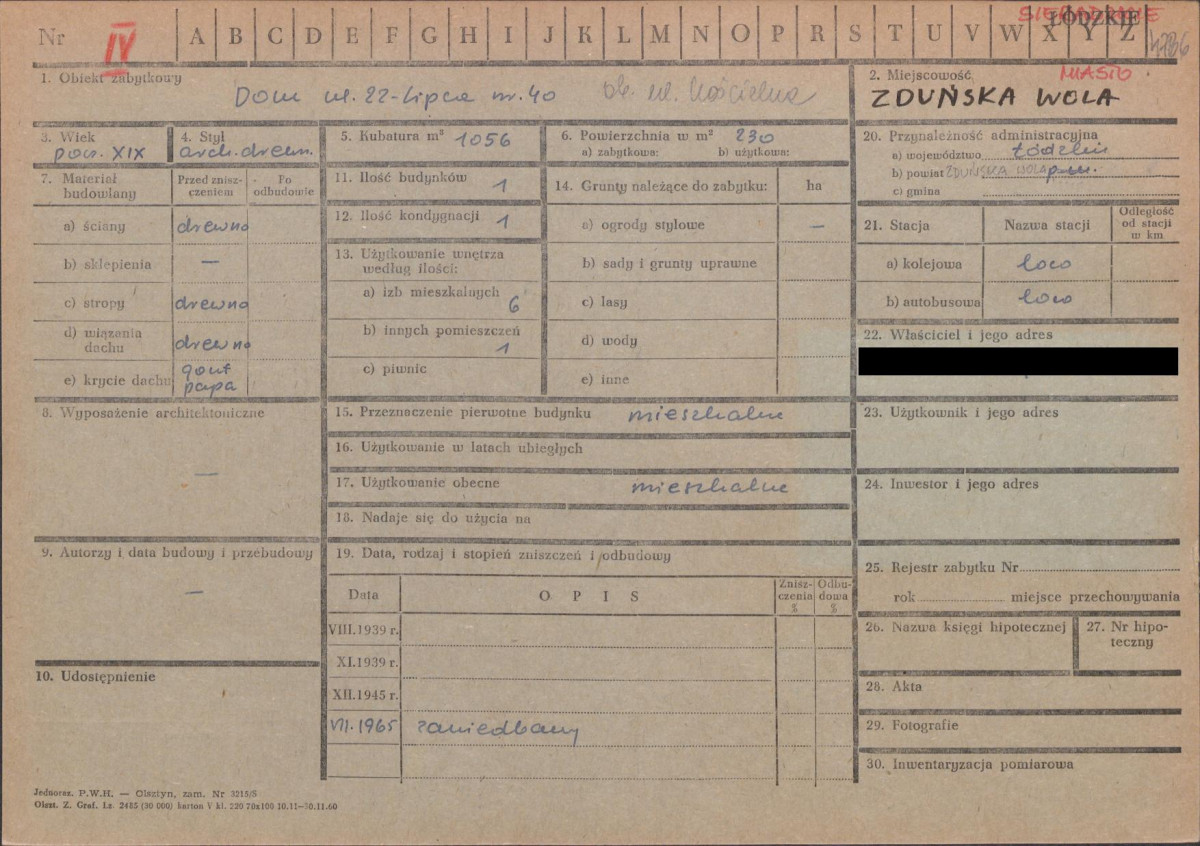 Nr IV A B C D E F G H I J K L M N O P R S T U V W X Y Z
SIERADZKIE
ŁÓDZKIE
4786
1. Obiekt zabytkowy
Dom ul. 22-Lipca nr. 40 ob. ul. Kościelna
2. Miejscowość MIASTO
ZDUŃSKA WOLA
3. Wiek
pow. XIX
4. Styl
arch. drewn.
5. Kubatura m³ 1056
6. Powierzchnia w m² 230
a) zabytkowa: b) użytkowa:
7. Materiał budowlany
Przed zniszczeniem
Po odbudowie
a) ściany drewno
b) sklepienia —
c) stropy drewno
d) wiązania dachu drewno
e) krycie dachu gont papa
8. Wyposażenie architektoniczne
—
9. Autorzy i data budowy i przebudowy
—
10. Udostępnienie
11. Ilość budynków 1
12. Ilość kondygnacji 1
13. Użytkowanie wnętrza według ilości:
a) izb mieszkalnych 6
b) innych pomieszczeń 1
c) piwnic
14. Grunty należące do zabytku: ha
a) ogrody stylowe —
b) sady i grunty uprawne
c) lasy
d) wody
e) inne
15. Przeznaczenie pierwotne budynku mieszkalne
16. Użytkowanie w latach ubiegłych
17. Użytkowanie obecne mieszkalne
18. Nadaje się do użycia na
19. Data, rodzaj i stopień zniszczeń i odbudowy
Data OPIS Zniszczenia % Odbudowa %
VIII.1939 r.
XI.1939 r.
XII.1945 r.
VII.1965 zaniedbany
20. Przynależność administracyjna
a) województwo Łódzkie
b) powiat ZDUŃSKA WOLA
c) gmina
21. Stacja Nazwa stacji Odległość od stacji w km
a) kolejowa loco
b) autobusowa loco
22. Właściciel i jego adres
23. Użytkownik i jego adres
24. Inwestor i jego adres
25. Rejestr zabytku Nr
rok miejsce przechowywania
26. Nazwa księgi hipotecznej
27. Nr hipoteczny
28. Akta
29. Fotografie
30. Inwentaryzacja pomiarowa
Jednoraz. P.W.H. — Olsztyn, zam. Nr 3215/S
Olszt. Z. Graf. Lz. 2485 (30 000) karton V kl. 220 70x100 10.11—30.11.60